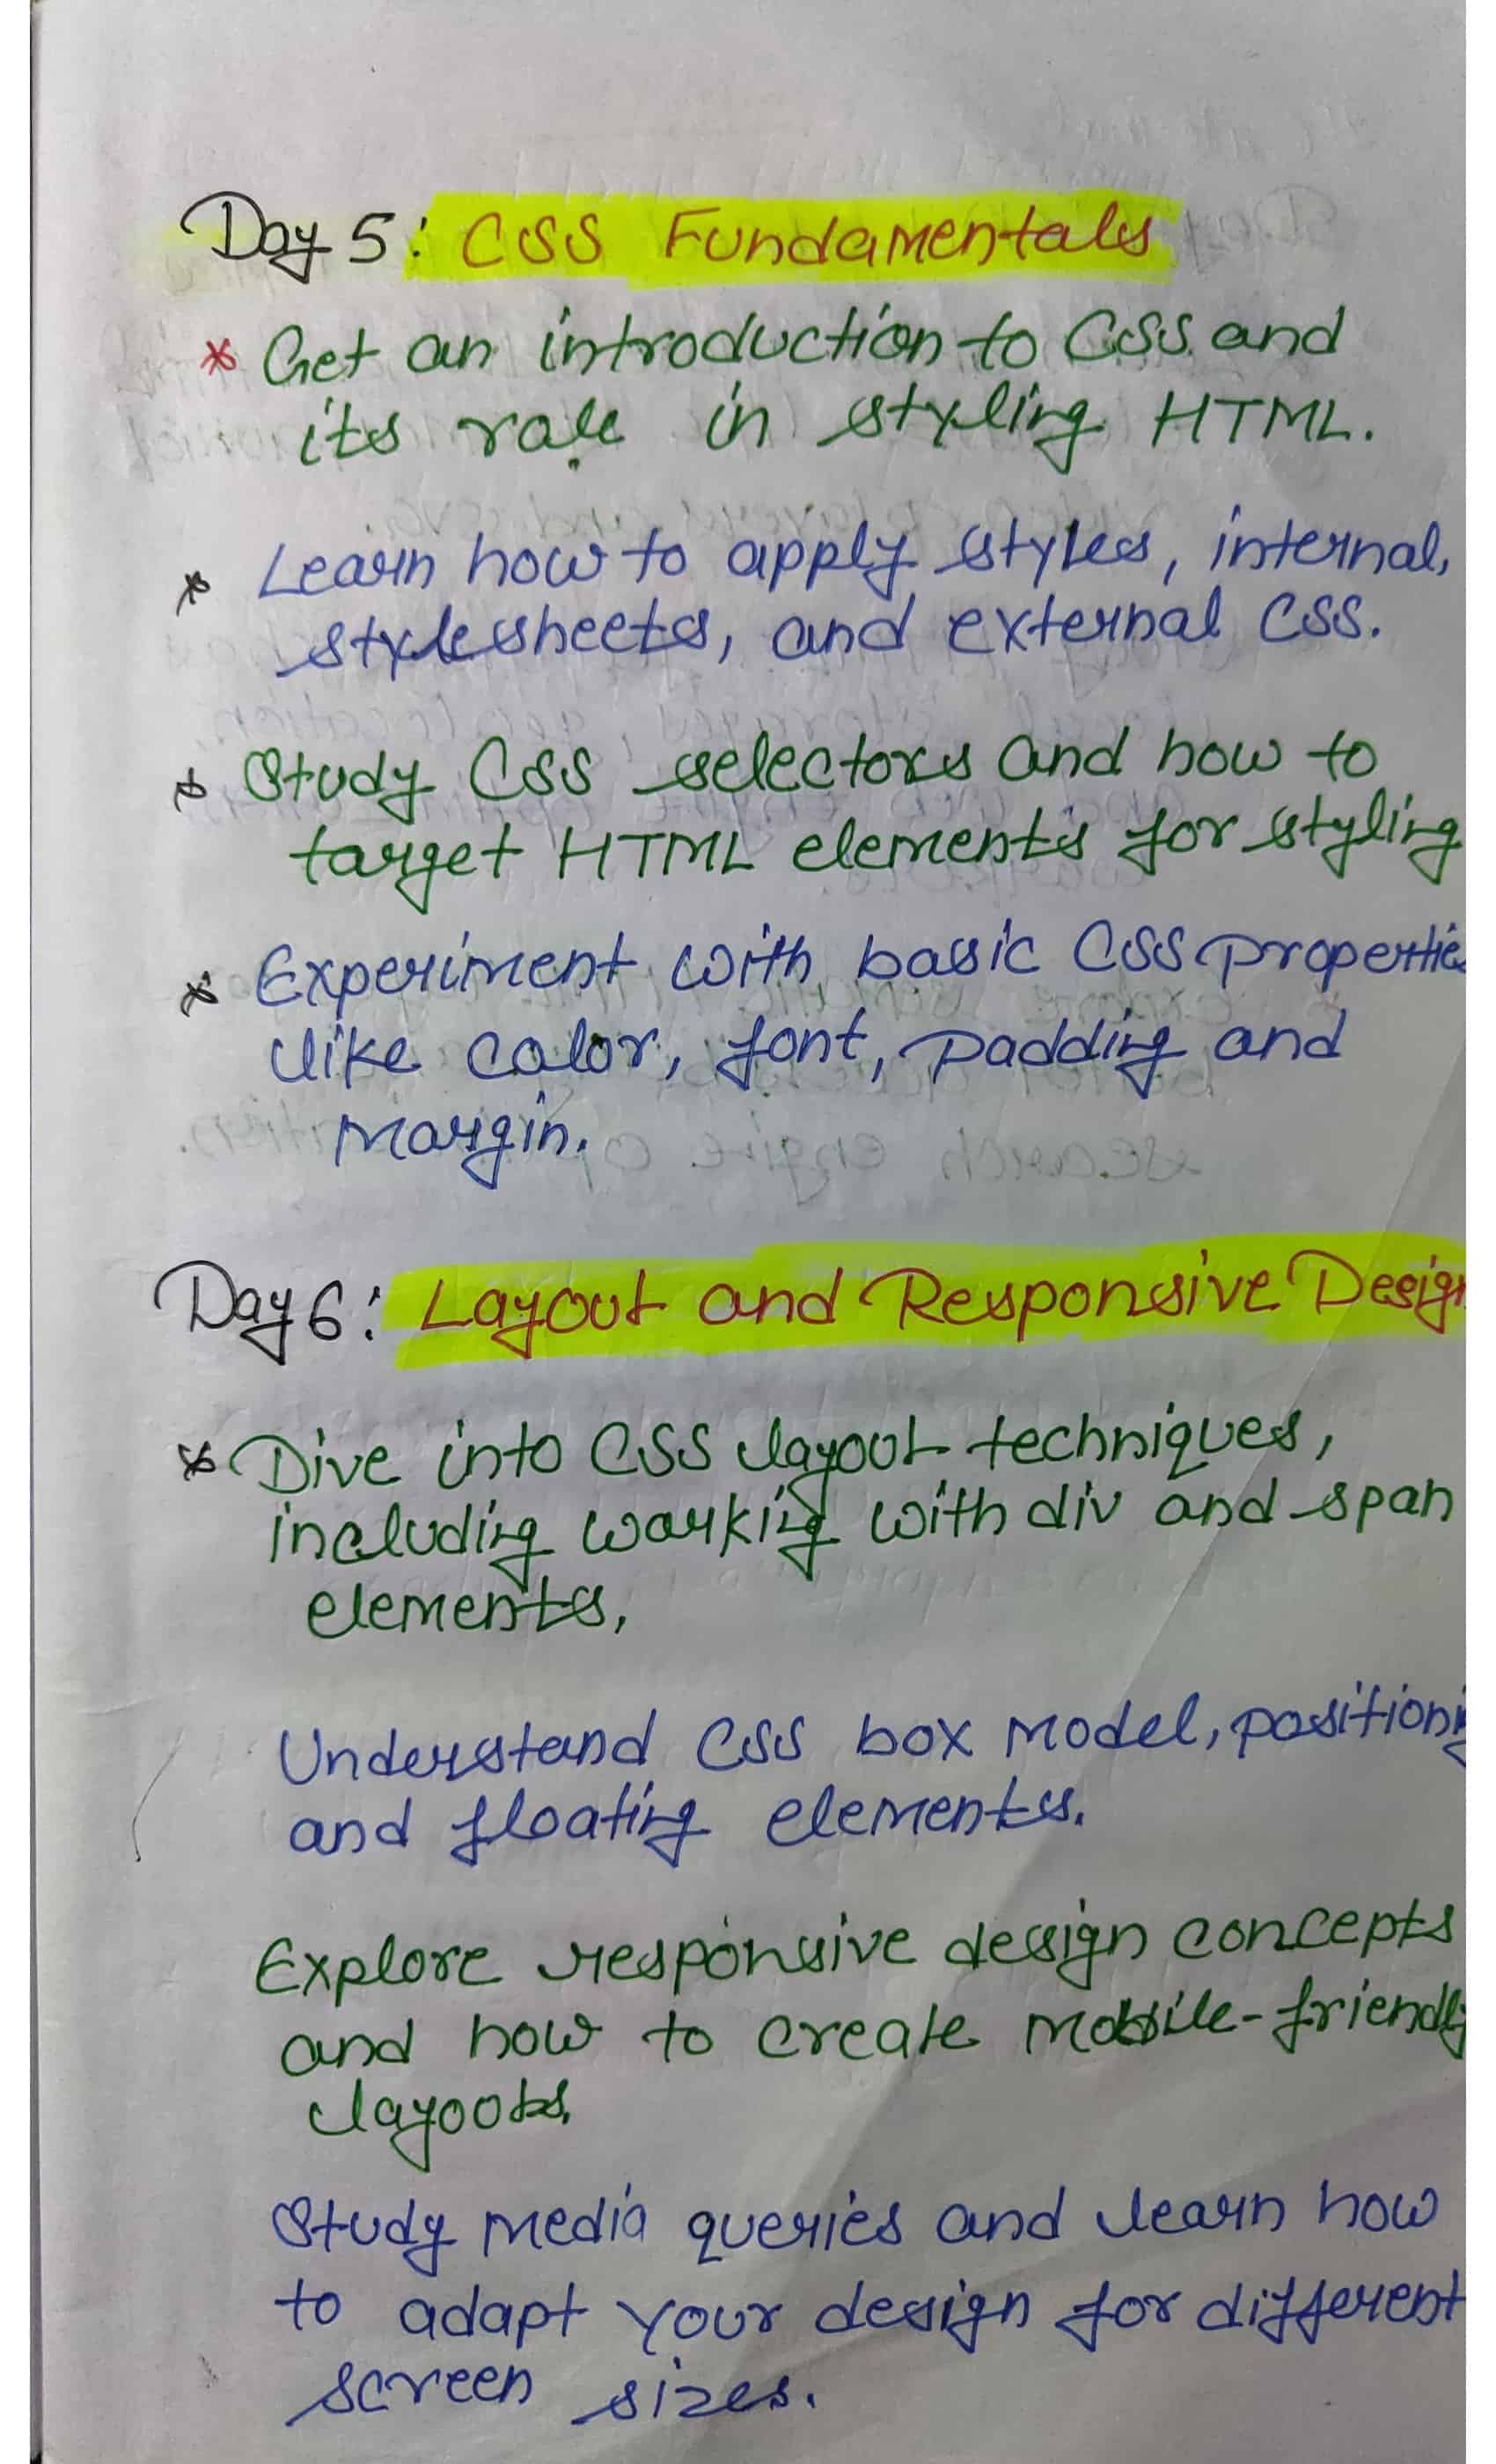 Day 5: CSS Fundamentals
* Get an introduction to CSS and
its role in styling HTML.
* Learn how to apply styles, internal,
stylesheets, and external CSS.
* Study CSS selectors and how to
target HTML elements for styling
* Experiment with basic CSS Propertie
like color, font, padding and
margin.
Day 6: Layout and Responsive Design
* Dive into CSS layout techniques,
including working with div and span
elements,
Understand CSS box model, positioning
and floating elements.
Explore responsive design concepts
and how to create mobile-friendly
layouts.
Study media queries and learn how
to adapt your design for different
screen sizes.